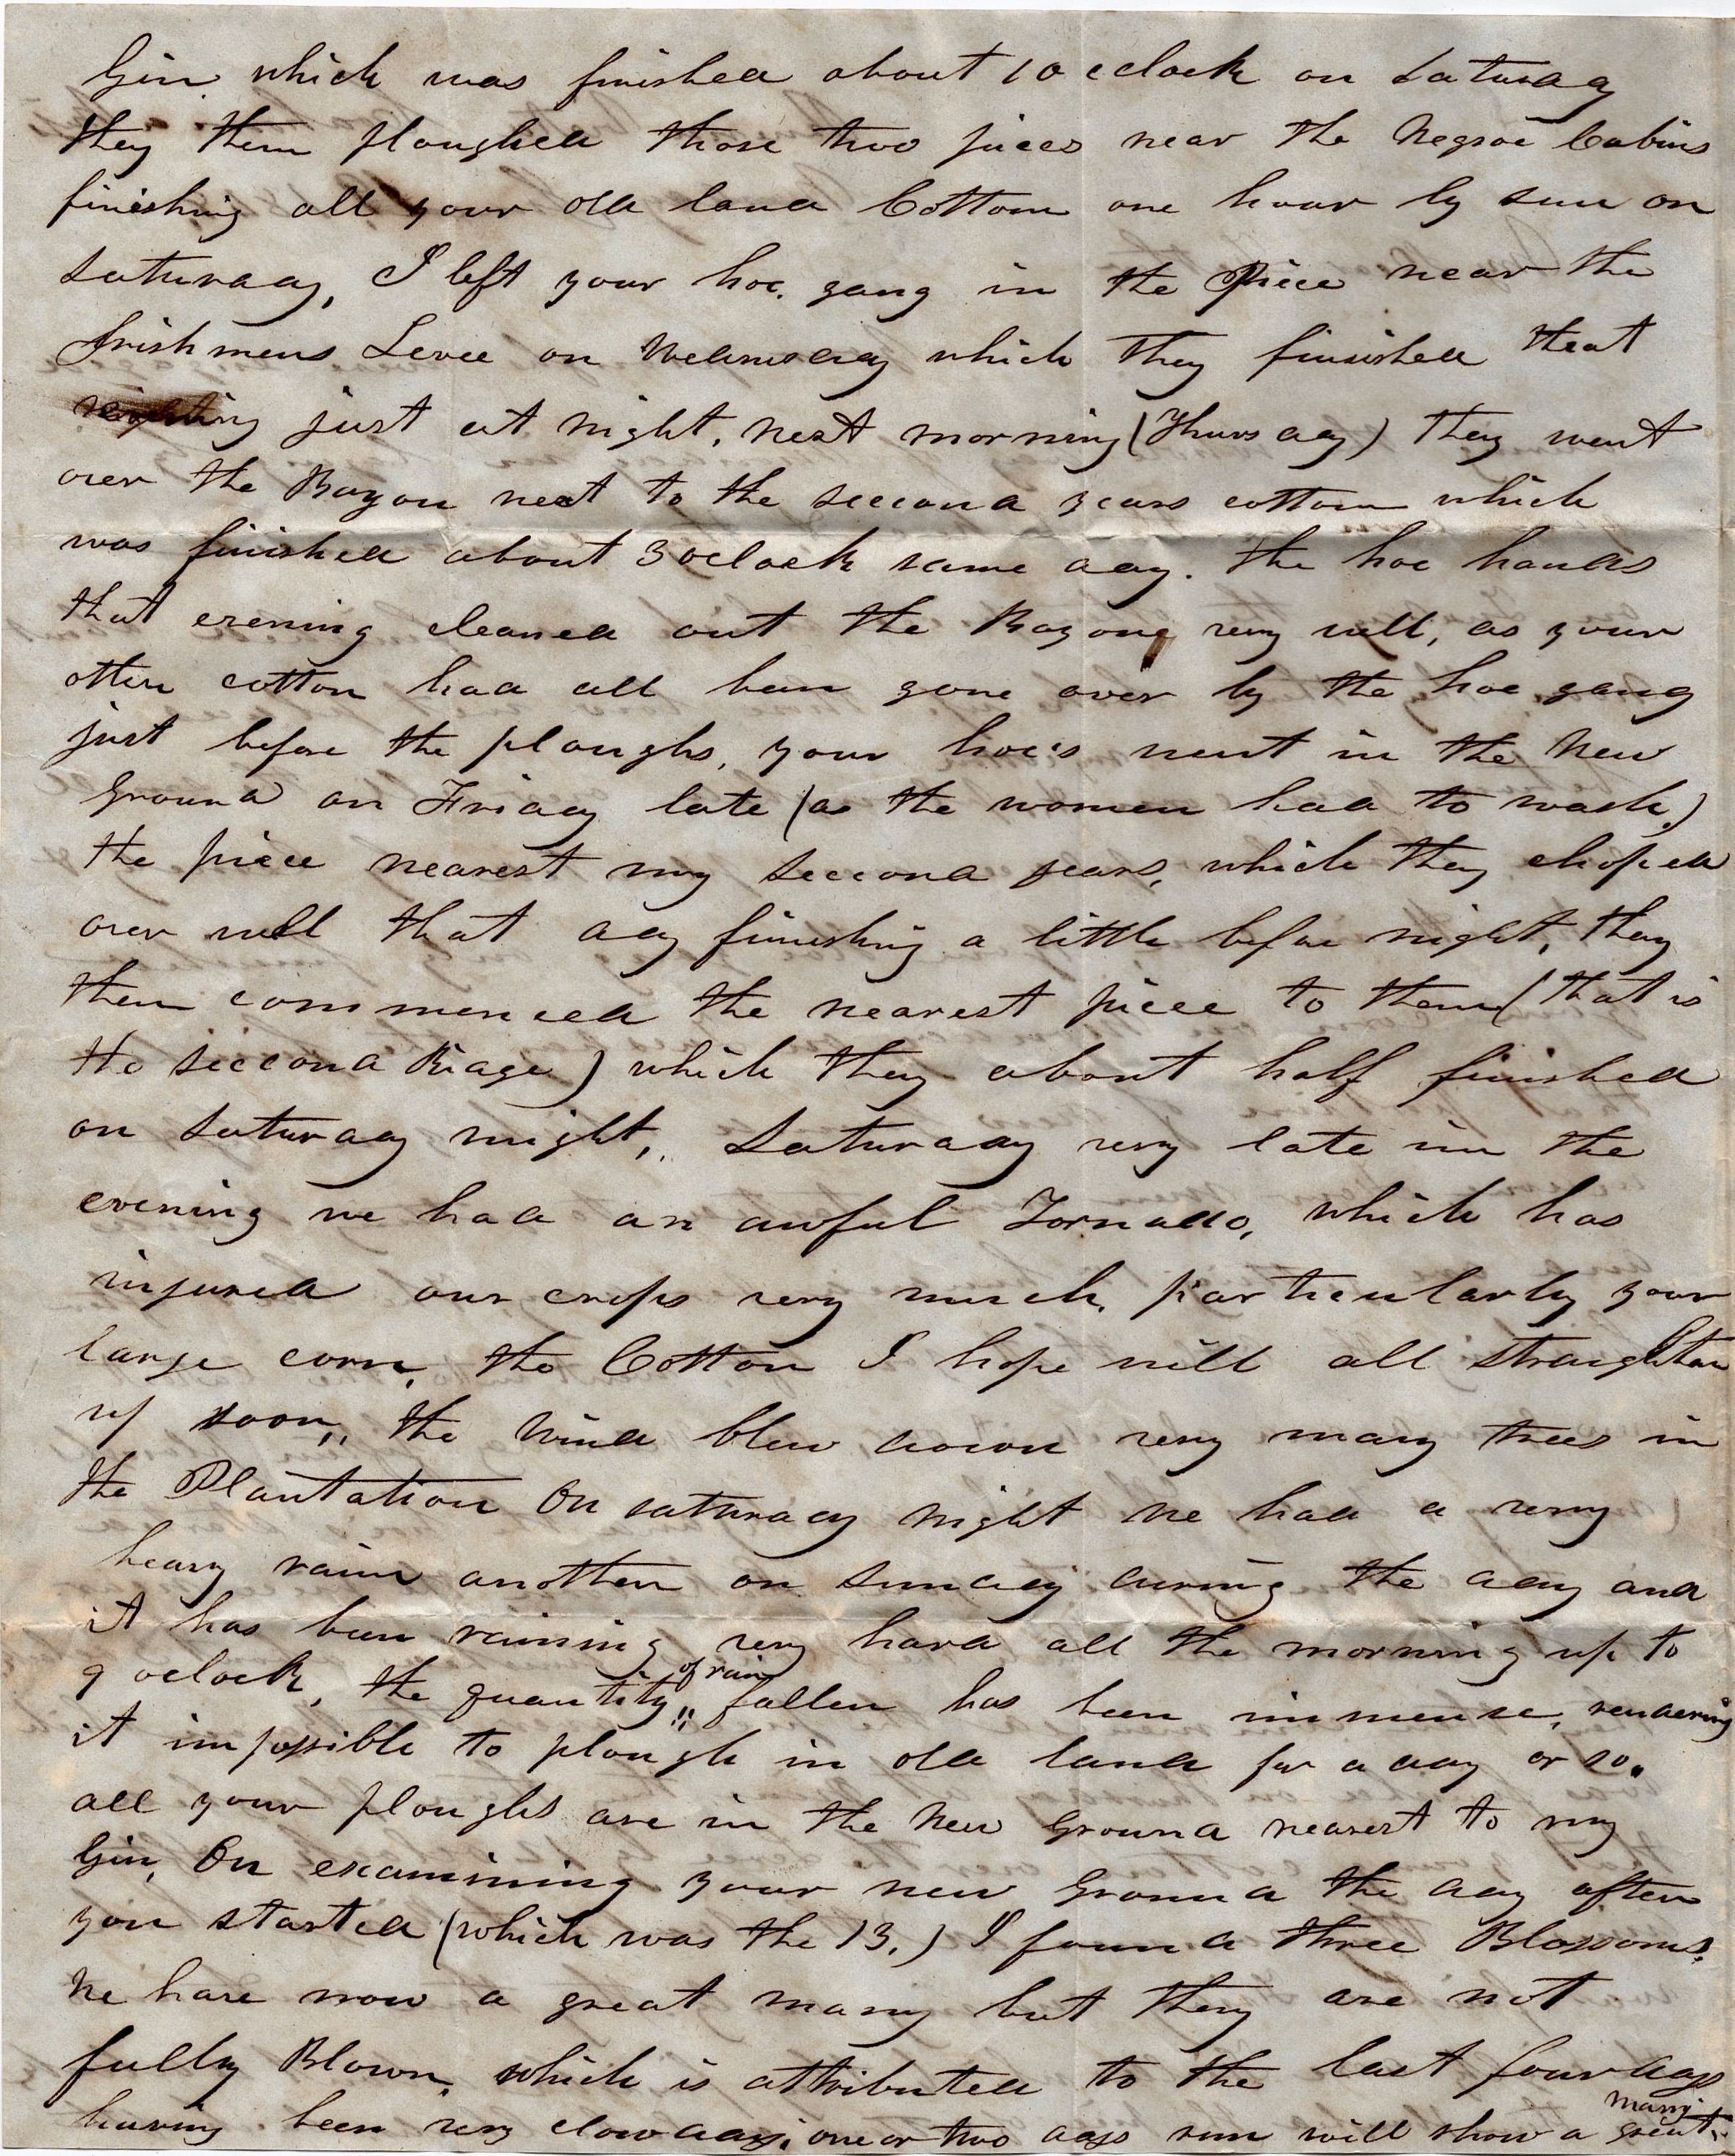 Gin which was finished about 10 oclock on Saturday
they then ploughed those two pieces near the Negroe Cabins
finishing all your old land Cotton one hour by sun on
Saturday, I left your hoe gang in the Piece near the
Irishmens Levee on Wednesday which they finished that
just at night, next morning (Thursday) they went
over the Bayou next to the seccond years cotton which
was finished about 3 oclock same day. the hoe hands
that evening cleaned out the Bayous very well, as your
other cotton had all been gone over by the hoe gang
just before the ploughs, your hoe's went in the New
Ground on Friday late (as the women had to wash.)
the piece nearest my seccond years, which they choped
over well that day finishing a little before night, they
then commenced the nearest piece to them (that is
the seccond Ridge) which they about half finished
on Saturday night, Saturday very late in the
evening we had an awful Tornado, which has
injured our crops very much, particularly your
large corn, the Cotton I hope will all straighten
up soon, the Wind blew down very many trees in
the Plantation On saturday night we had a very
heavy rain another on Sunday during the day and
it has been raining very hard all the morning up to
9 oclock, the quantity of rain fallen has been immense, rendering
it impossible to plough in old land for a day or so.
all your ploughs are in the New Ground nearest to my
Gin, On examining your new Ground the day after
you started (which was the 13.) I found three Blossoms.
We have now a great many but they are not
fully Blown, which is attributed to the last four days
having been very clowday, one or two days sun will show a great many